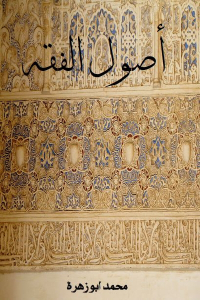 أصول الفقه
محمد ابوزهرة